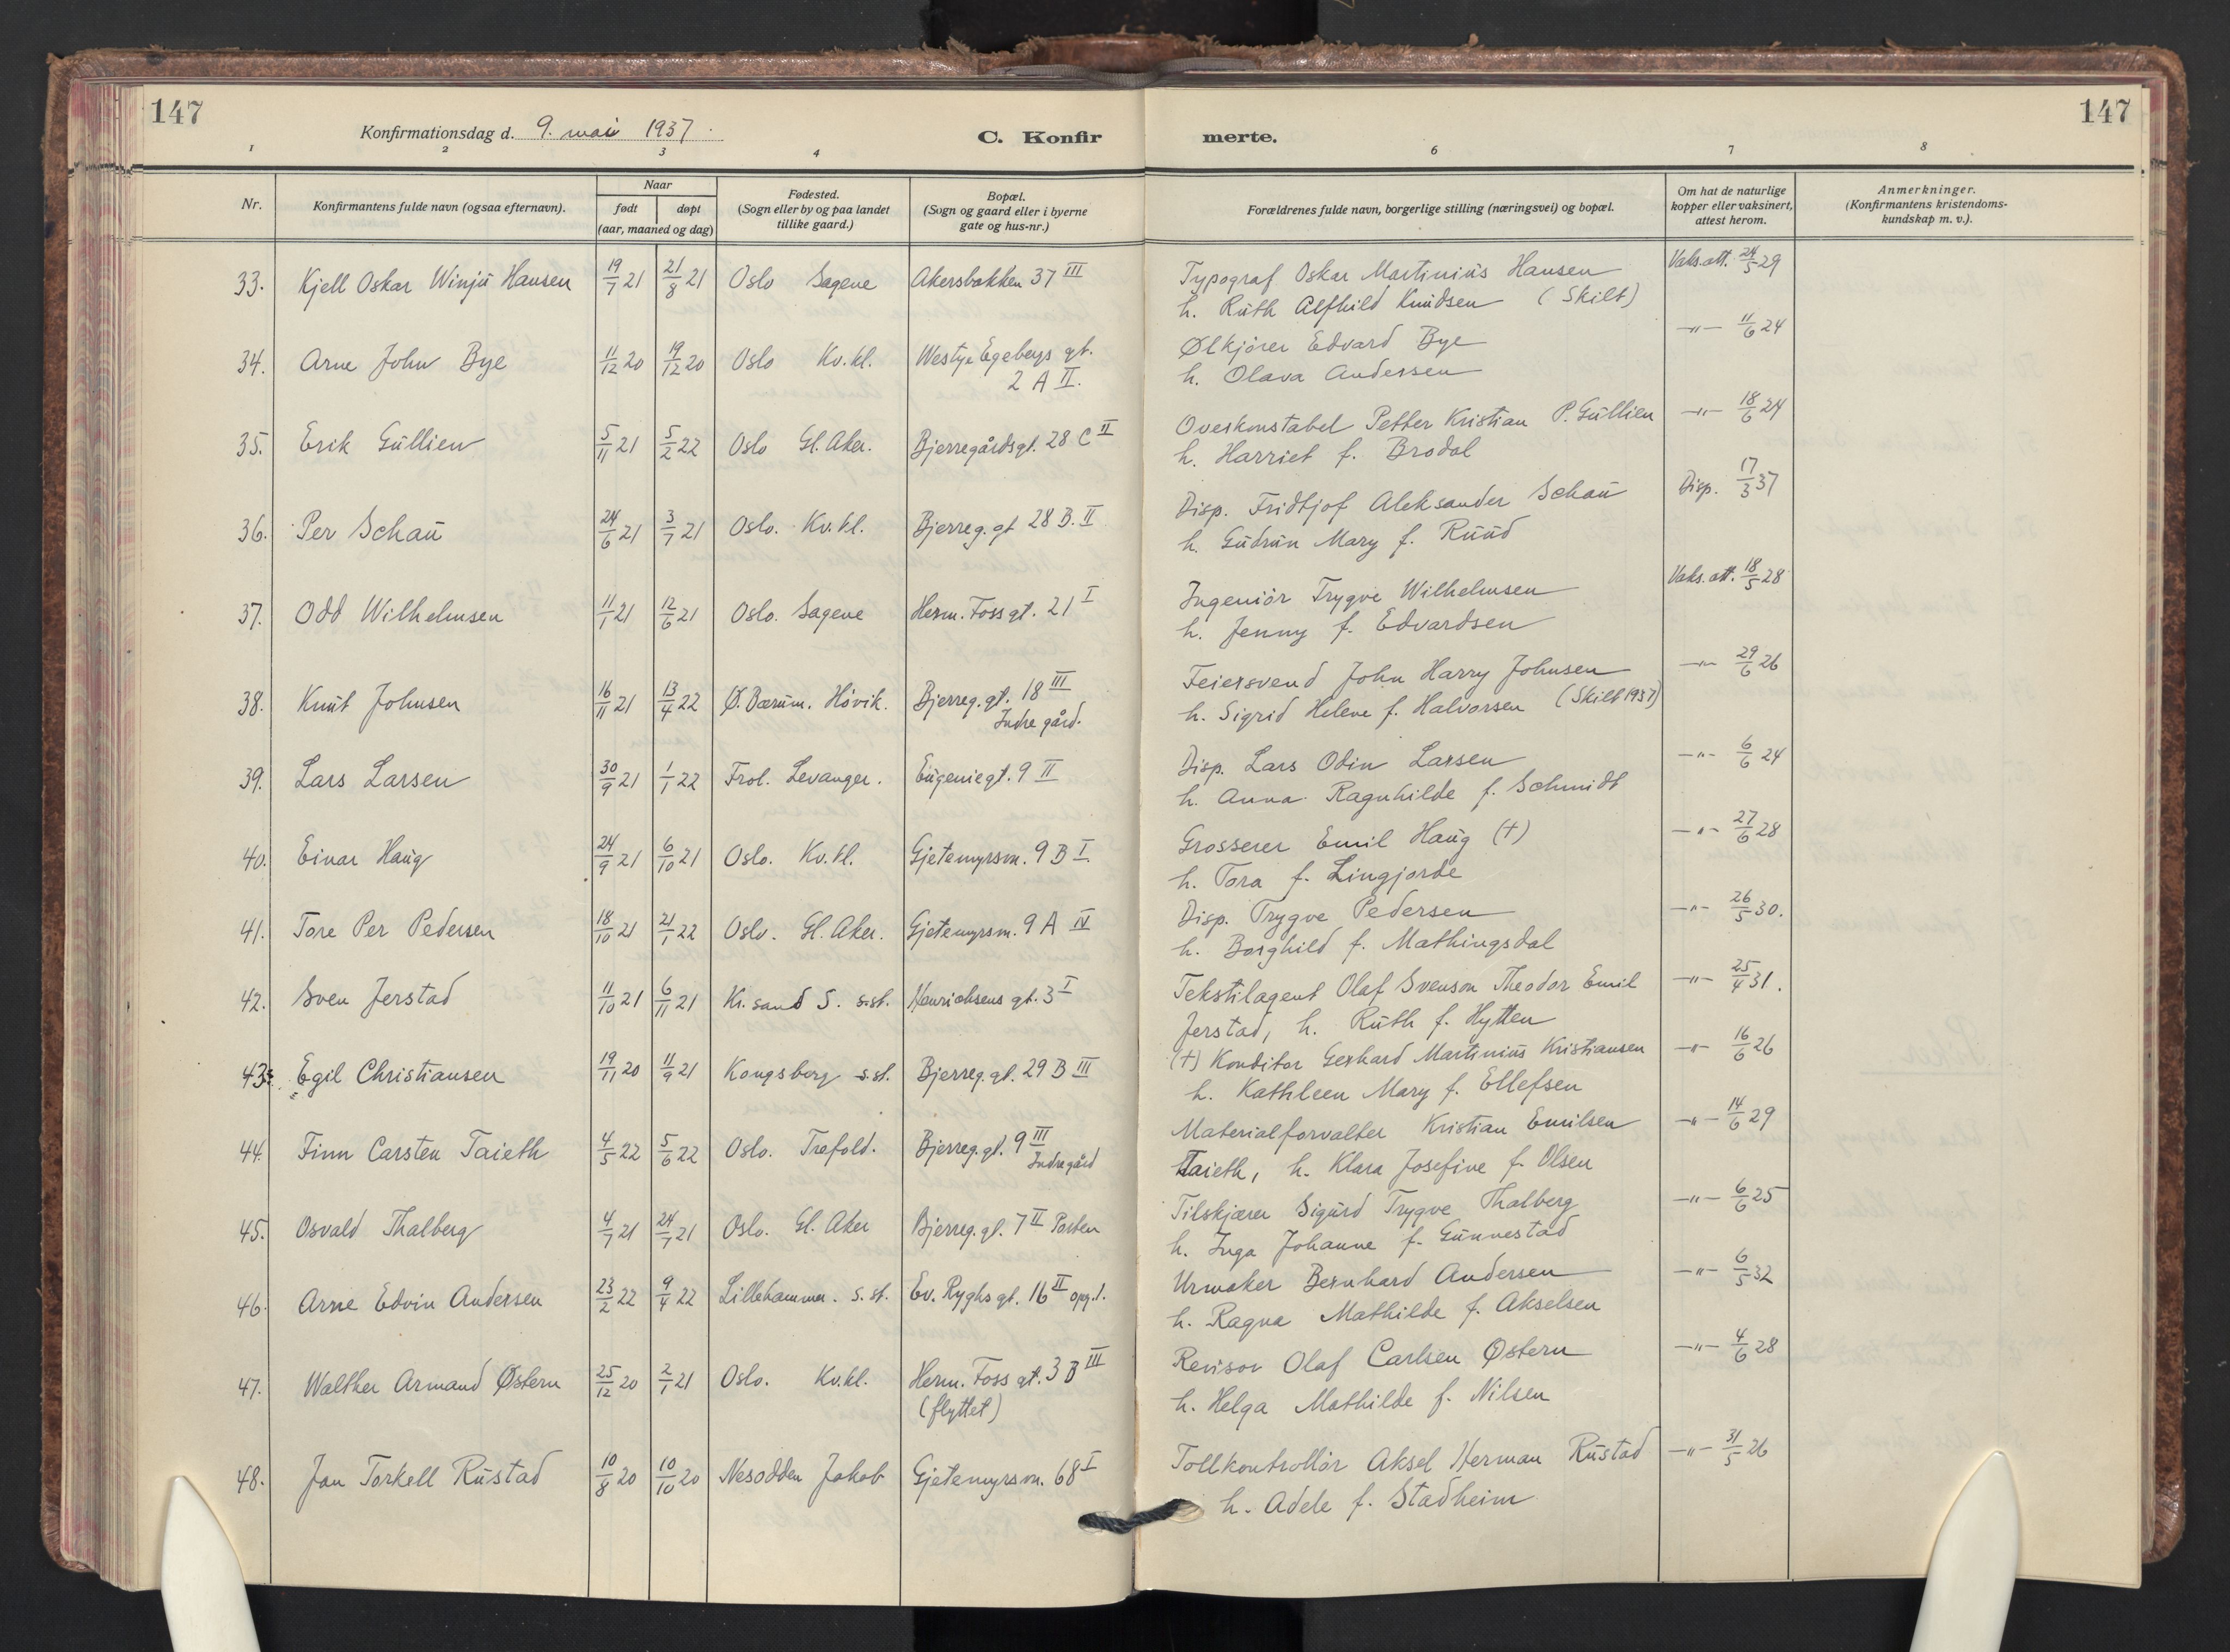 147
Konfirmationsdag d. 9. mai 1937.
C. Konfir
merte.
147
1 2 3 4 6 7 8
Nr.
Konfirmantens fulde navn (ogsaa efternavn).
Naar
født døpt
(aar, maaned og dag)
Fødested.
(Sogn eller by og paa landet
tillike gaard.)
Bopæl.
(Sogn og gaard eller i byerne
gate og hus-nr.)
Forældrenes fulde navn, borgerlige stilling (næringsvei) og bopæl.
Om hat de naturlige
kopper eller vaksinert,
attest herom.
Anmerkninger.
(Konfirmantens kristendoms-
kundskap m. v.).
33. Kjell Oskar Winju Hansen 19/7 21 21/8 21 Oslo Sagene Akersbakken 37 III
Typograf Oskar Martinius Hansen Vaks.att. 24/5 29
h. Ruth Alfhild Knudsen (Skilt)
34. Arne John Bye 11/12 20 19/12 20 Oslo Kv.kl. Westye Egebergs gt.
2 A II.
Ølkjører Edvard Bye —"— 11/6 24
h. Olava Andersen
35. Erik Gullien 5/11 21 5/2 22 Oslo Gl. Aker. Bjerregårdsgt. 28 C II
Overkonstabel Petter Kristian P. Gullien —"— 18/6 24
h. Harriet f. Brodal
36. Per Schau 24/6 21 3/7 21 Oslo. Kv.kl. Bjerreg.gt 28 B. II
Disp. Fridtjof Aleksander Schau Disp. 17/3 37
h. Gudrun Mary f. Ruud
37. Odd Wilhelmsen 11/1 21 12/6 21 Oslo. Sagene Herm. Foss gt. 21 I
Ingeniør Trygve Wilhelmsen Vaks.att. 18/5 28
h. Jenny f. Edvardsen
38. Knut Johnsen 16/11 21 13/4 22 Ø. Bærum. Høvik. Bjerreg.gt. 18 III
Indre gård.
Feiersvend John Harry Johnsen —"— 29/6 26
h. Sigrid Helene f. Halvorsen (Skilt 1937)
39. Lars Larsen 30/9 21 1/1 22 Frol. Levanger. Eugeniegt. 9 II
Disp. Lars Odin Larsen —"— 6/6 24
h. Anna Ragnhilde f. Schmidt
40. Einar Haug 24/9 21 6/10 21 Oslo. Kv.kl. Gjetemyrsv. 9 B I
Grosserer Emil Haug (†) —"— 27/6 28
h. Tora f. Lingjorde
41. Tore Per Pedersen 18/10 21 21/1 22 Oslo. Gl. Aker. Gjetemyrsv. 9 A IV
Disp. Trygve Pedersen —"— 26/5 30.
h. Borghild f. Mathingsdal
42. Sven Jerstad 11/10 21 6/11 21 Kr.sand S. s.st. Henrichsens gt. 3 I
Tekstilagent Olaf Svenson Theodor Emil —"— 25/4 31.
Jerstad, h. Ruth f. Hytten
43. Egil Christiansen 19/11 20 11/9 21 Kongsberg s.st. Bjerreg.gt. 29 B III
(†) Konditor Gerhard Martinius Kristiansen —"— 16/6 26
h. Kathleen Mary f. Ellefsen
44. Finn Carsten Taieth 4/5 22 5/6 22 Oslo. Trefold. Bjerreg.gt. 9 III
Indre gård
Materialforvalter Kristian Emilsen —"— 14/6 29
Taieth, h. Klara Josefine f. Olsen
45. Osvald Thalberg 4/7 21 24/7 21 Oslo. Gl. Aker Bjerreg.gt. 7 II Porten
Tilskjærer Sigurd Trygve Thalberg —"— 6/6 25
h. Inga Johanne f. Gunnestad
46. Arne Edvin Andersen 23/2 22 9/4 22 Lillehammer. s.st. Ev. Ryghs gt. 16 II opg.1.
Urmaker Bernhard Andersen —"— 6/5 32
h. Ragna Mathilde f. Akselsen
47. Walther Armand Østern 25/12 20 2/1 21 Oslo. Kv.kl. Herm. Foss gt. 3 B III
(flyttet)
Revisor Olaf Carlsen Østern —"— 4/6 28
h. Helga Mathilde f. Nilsen
48. Jan Torkell Rustad 10/8 20 10/10 20 Nesodden Jakob Gjetemyrsv. 68 I
Tollkontrollør Aksel Herman Rustad —"— 31/5 26
h. Adele f. Stadheim